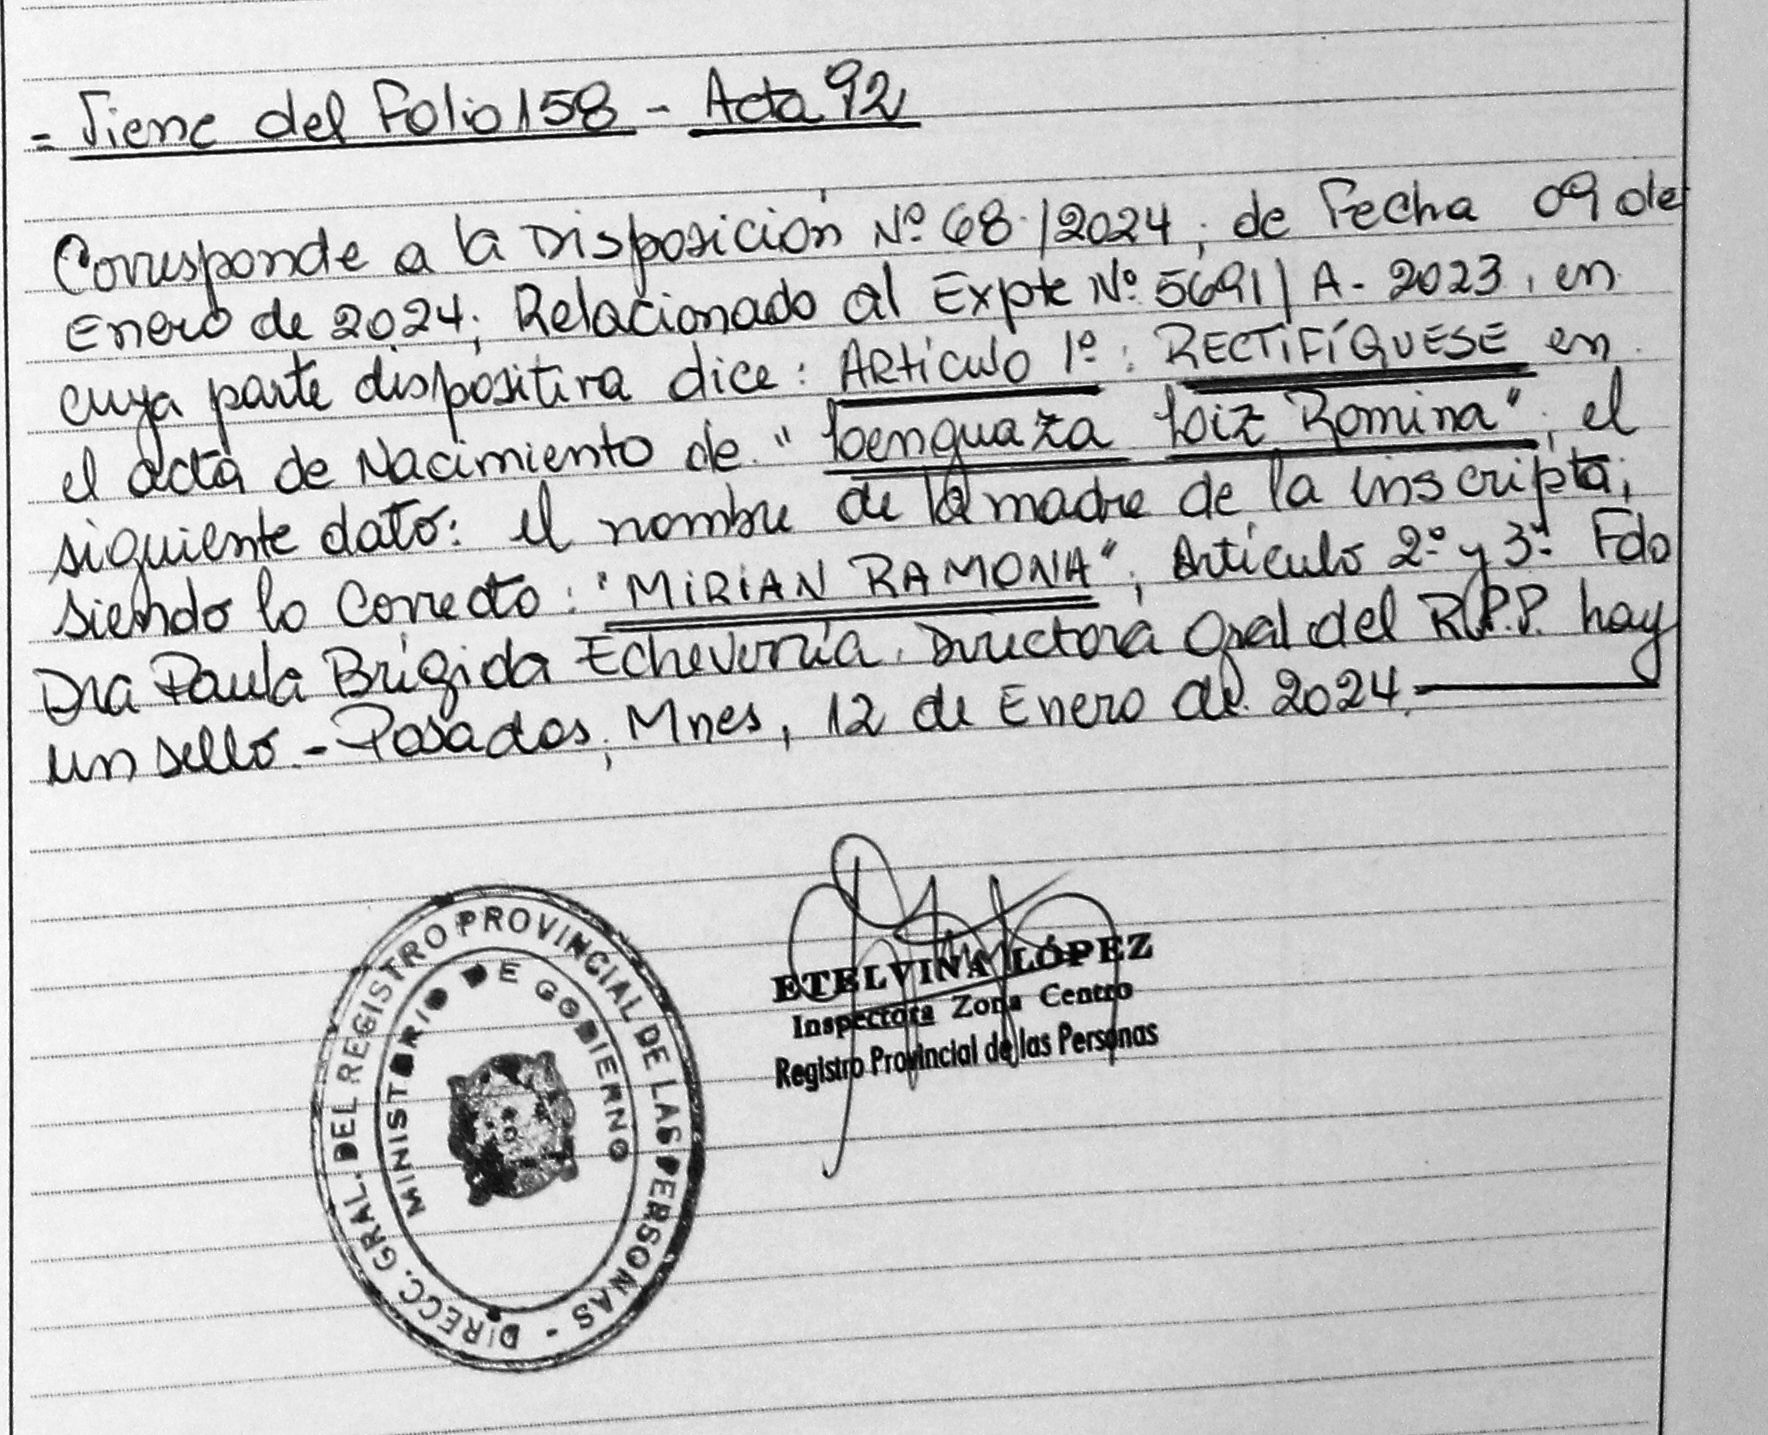 = Viene del Folio 158 - Acta 92
Corresponde a la Disposición Nº 68/2024; de Fecha 09 de
Enero de 2024; Relacionado al Expte Nº 5691/A-2023, en
cuya parte dispositiva dice: ARtículo 1º: RECTIFÍQUESE en
el acta de Nacimiento de "Benguaza Loiz Romina"; el
siguiente dato: el nombre de la madre de la inscripta;
siendo lo Correcto: "MIRIAN RAMONA"; Artículo 2º y 3º Fdo
Dra Paula Brígida Echeverría. Directora Gral del R.P.P. hay
un sello.- Posadas, Mnes, 12 de Enero de 2024.
DIRECC. GRAL. DEL REGISTRO PROVINCIAL DE LAS PERSONAS -
MINISTERIO DE GOBIERNO
ETELVINA LÓPEZ
Inspectora Zona Centro
Registro Provincial de las Personas